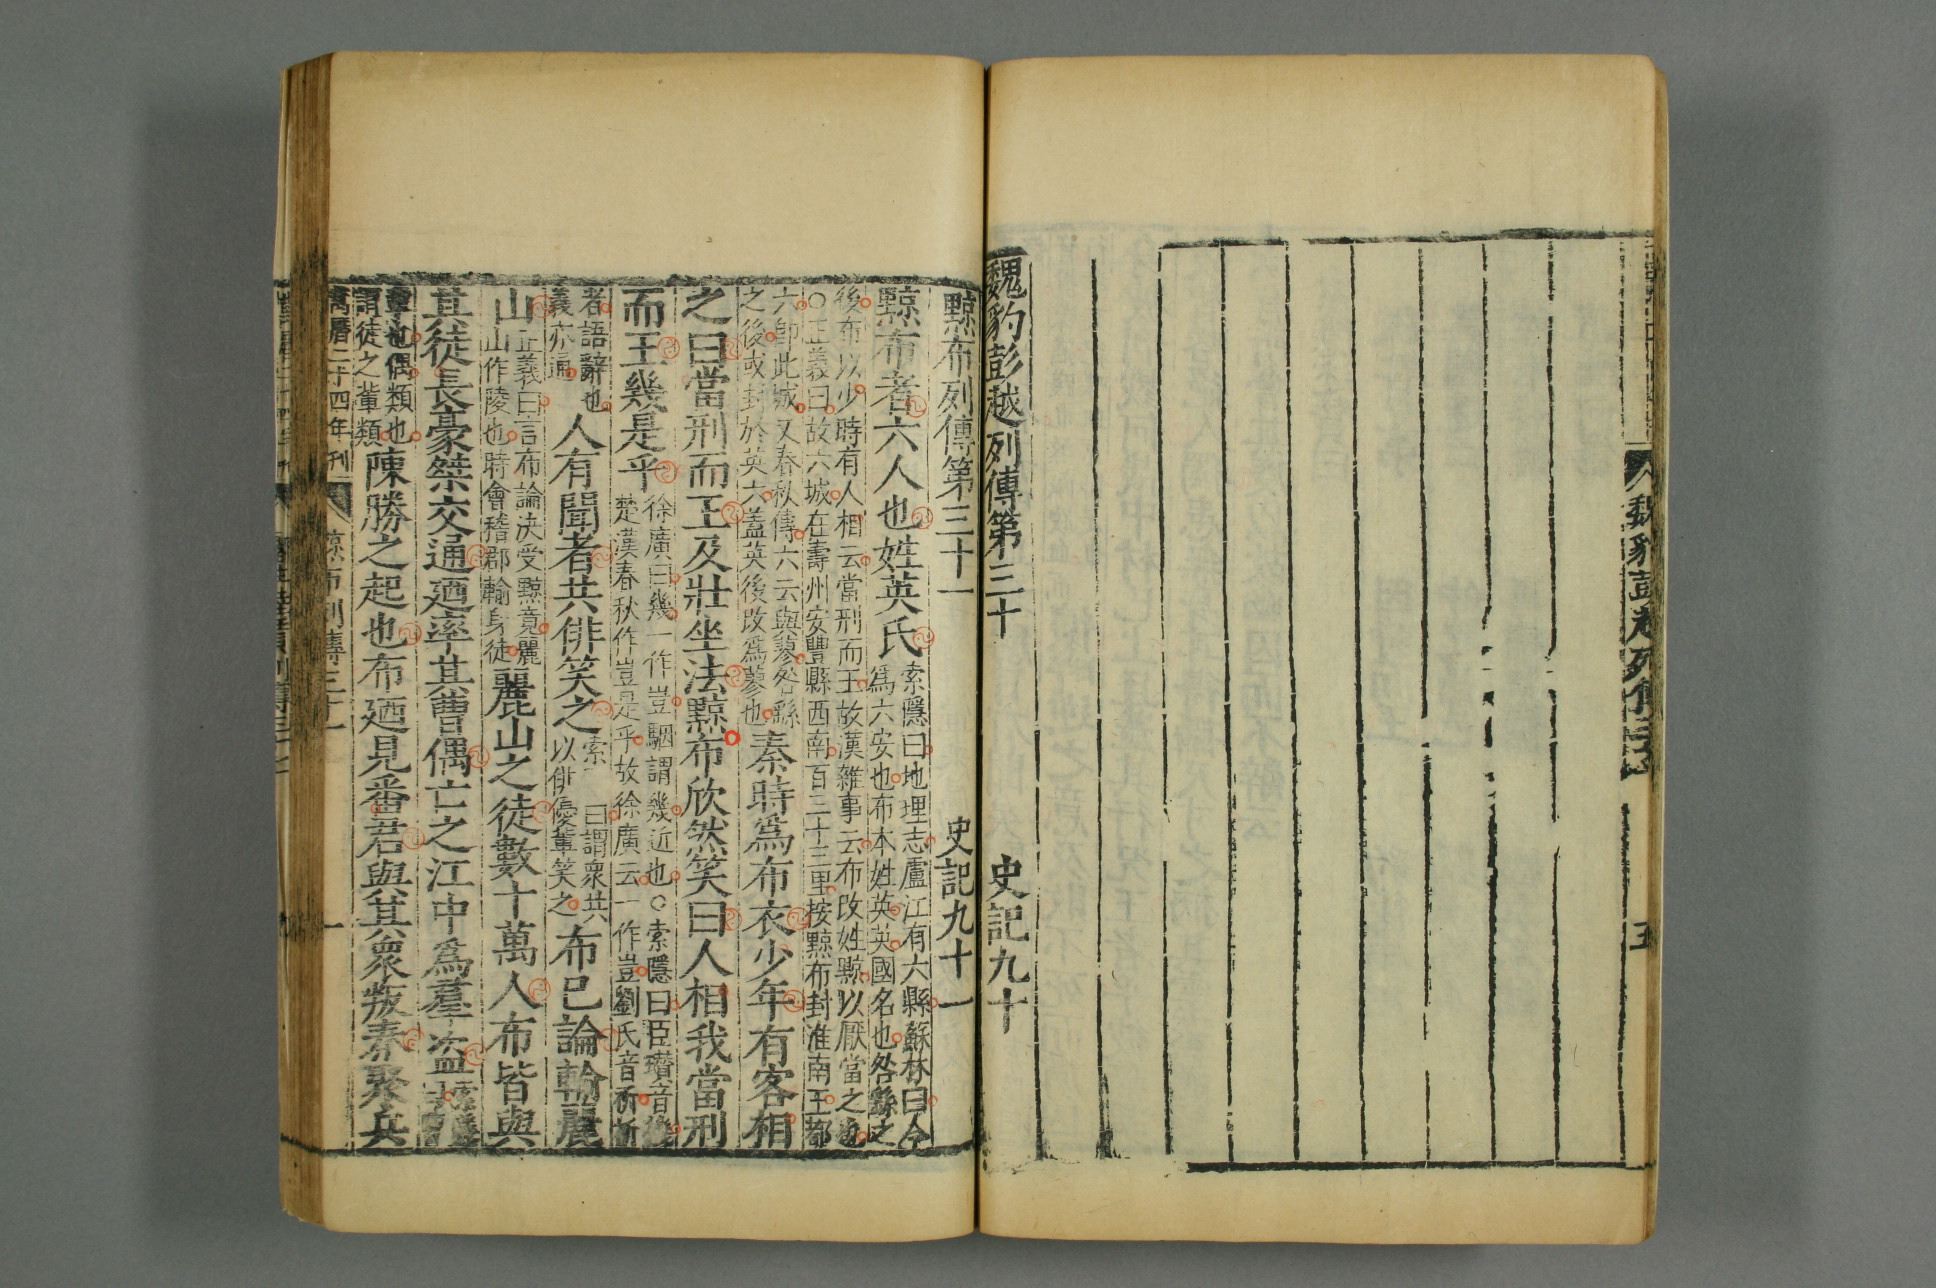 魏豹彭越列傳三十
五
魏豹彭越列傳第三十 史記九十
黥布列傳第三十一 史記九十一
黥布者六人也姓英氏
索隱曰地理志廬江有六縣蘇林曰今
爲六安也布本姓英英國名也咎繇之
後布以少時有人相云當刑而王故漢雜事云布改姓黥以厭當之也
○正義曰故六城在壽州安豐縣西南百三十三里按黥布封淮南王都
六卽此城又春秋傳六云與蓼咎繇
之後或封於英六蓋英後改爲蓼也
秦時爲布衣少年有客相
之曰當刑而王及壯坐法黥布欣然笑曰人相我當刑
而王幾是乎
徐廣曰幾一作豈駰謂幾近也○索隱曰臣瓚音機
楚漢春秋作豈是乎故徐廣云一作豈劉氏音祈祈
者語辭也
義亦通
人有聞者共俳笑之
索 曰謂衆共
以俳優輩笑之
布已論輸麗
山
正義曰言布論決受黥竟麗
山作陵也時會稽郡輸身徒
麗山之徒數十萬人布皆與
其徒長豪桀交通廼率其曹偶亡之江中爲羣盜
輩也偶類也
謂徒之輩類
陳勝之起也布廼見番君與其衆叛秦聚兵
萬曆二十四年刊
黥布列傳三十一
一